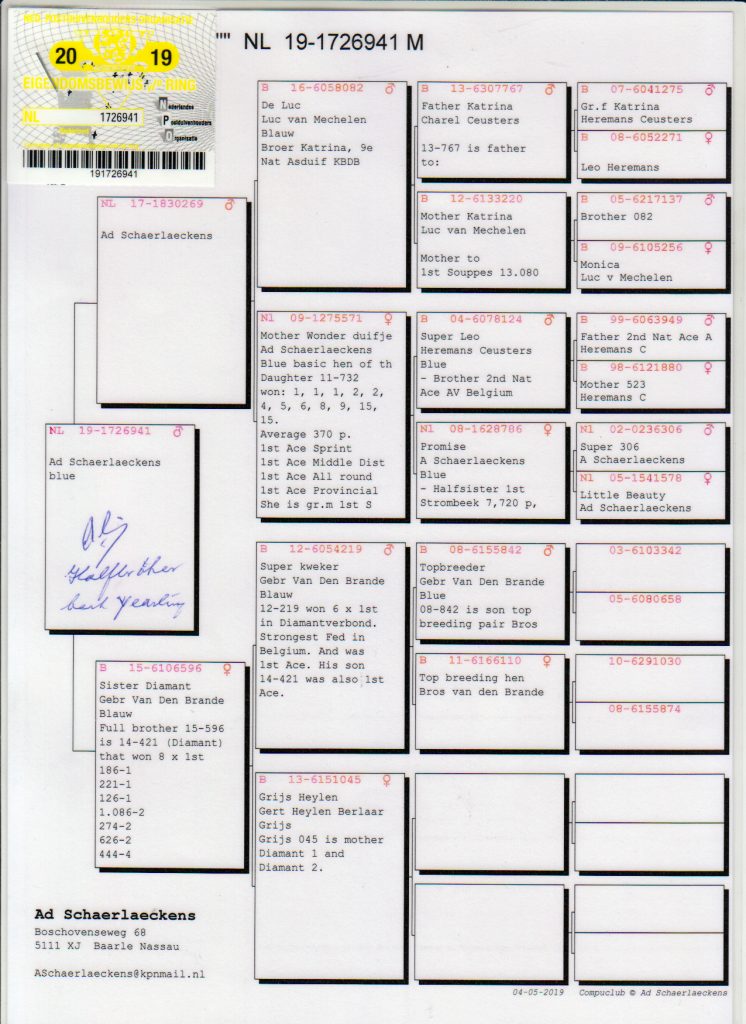 NED. POSTDUIVENHOUDERS ORGANISATIE
20 19
EIGENDOMSBEWIJS v/e RING
NL 1726941
Nederlandse
Postduivenhouders
Organisatie
191726941
"" NL 19-1726941 M
NL 19-1726941 ♂
Ad Schaerlaeckens
blue
Halfbrother
best Yearling
NL 17-1830269 ♂
Ad Schaerlaeckens
B 15-6106596 ♀
Sister Diamant
Gebr Van Den Brande
Blauw
Full brother 15-596
is 14-421 (Diamant)
that won 8 x 1st
186-1
221-1
126-1
1.086-2
274-2
626-2
444-4
B 16-6058082 ♂
De Luc
Luc van Mechelen
Blauw
Broer Katrina, 9e
Nat Asduif KBDB
Nl 09-1275571 ♀
Mother Wonder duifje
Ad Schaerlaeckens
Blue basic hen of th
Daughter 11-732
won: 1, 1, 1, 2, 2,
4, 5, 6, 8, 9, 15,
15.
Average 370 p.
1st Ace Sprint
1st Ace Middle Dist
1st Ace All round
1st Ace Provincial
She is gr.m 1st S
B 12-6054219 ♂
Super kweker
Gebr Van Den Brande
Blauw
12-219 won 6 x 1st
in Diamantverbond.
Strongest Fed in
Belgium. And was
1st Ace. His son
14-421 was also 1st
Ace.
B 13-6151045 ♀
Grijs Heylen
Gert Heylen Berlaar
Grijs
Grijs 045 is mother
Diamant 1 and
Diamant 2.
B 13-6307767 ♂
Father Katrina
Charel Ceusters
13-767 is father
to:
B 12-6133220 ♀
Mother Katrina
Luc van Mechelen
Mother to
1st Souppes 13.080
B 04-6078124 ♂
Super Leo
Heremans Ceusters
Blue
- Brother 2nd Nat
Ace AV Belgium
Nl 08-1628786 ♀
Promise
A Schaerlaeckens
Blue
- Halfsister 1st
Strombeek 7,720 p,
B 08-6155842 ♂
Topbreeder
Gebr Van Den Brande
Blue
08-842 is son top
breeding pair Bros
B 11-6166110 ♀
Top breeding hen
Bros van den Brande
B 07-6041275 ♂
Gr.f Katrina
Heremans Ceusters
B 08-6052271 ♀
Leo Heremans
B 05-6217137 ♂
Brother 082
B 09-6105256 ♀
Monica
Luc v Mechelen
B 99-6063949 ♂
Father 2nd Nat Ace A
Heremans C
B 98-6121880 ♀
Mother 523
Heremans C
Nl 02-0236306 ♂
Super 306
A Schaerlaeckens
Nl 05-1541578 ♀
Little Beauty
Ad Schaerlaeckens
03-6103342
05-6080658
10-6291030
08-6155874
Ad Schaerlaeckens
Boschovenseweg 68
5111 XJ Baarle Nassau
ASchaerlaeckens@kpnmail.nl
04-05-2019 Compuclub © Ad Schaerlaeckens